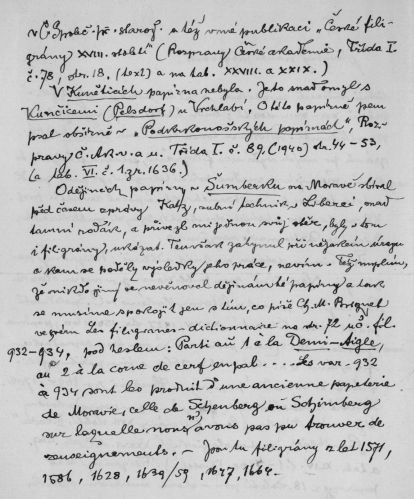 v Č. Spol. př. starož. a též v mé publikaci „České fili-
grány XVIII. století" (Rozpravy České akademie, Třída I.
č. 78, str. 18, (text) a na tab. XXVIII. a XXIX.)
V Kunčicích papírna nebyla. Jste snad omyl s
Kunčicemi (Pelsdorf) u Vrchlabí. O této papírně jsem
psal obšírně v „Podkrkonošských papírnách", Roz-
pravy Č. Ak. v. a u. Třída I. č. 89. (1940) str. 44-53,
(a tab. VI. č. 1 z r. 1636.)
O dějinách papírny v Šumberku na Moravě sbíral
před časem zprávy Katz, zubní technik v Liberci, snad
tamní rodák, a přivezl mi jednou svůj sběr, byly v tom
i filigrány, ukázat. Ten však zahynul při nějakém úrazu
a kam se poděly výsledky jeho práce, nevím. Též myslím,
že nikdo jiný se nevěnoval dějinám té papírny a tak
se musíme spokojit jen s tím, co píše Ch. M. Briquet
ve svém Les filigranes - dictionnaire na str. 72 u č. fil.
932-934, pod heslem: Parti au 1 à la Demi-Aigle,
au 2 à la corne de cerf en pal.....Les var. 932
à 934 sont les produit d'une ancienne papeterie
de Moravie, celle de Schenberg où Schimberg
sur laquelle nous n'avons pas pu trouver de
renseignements. - Jsou tu filigrány z let 1571,
1586, 1628, 1639/59, 1647, 1664.